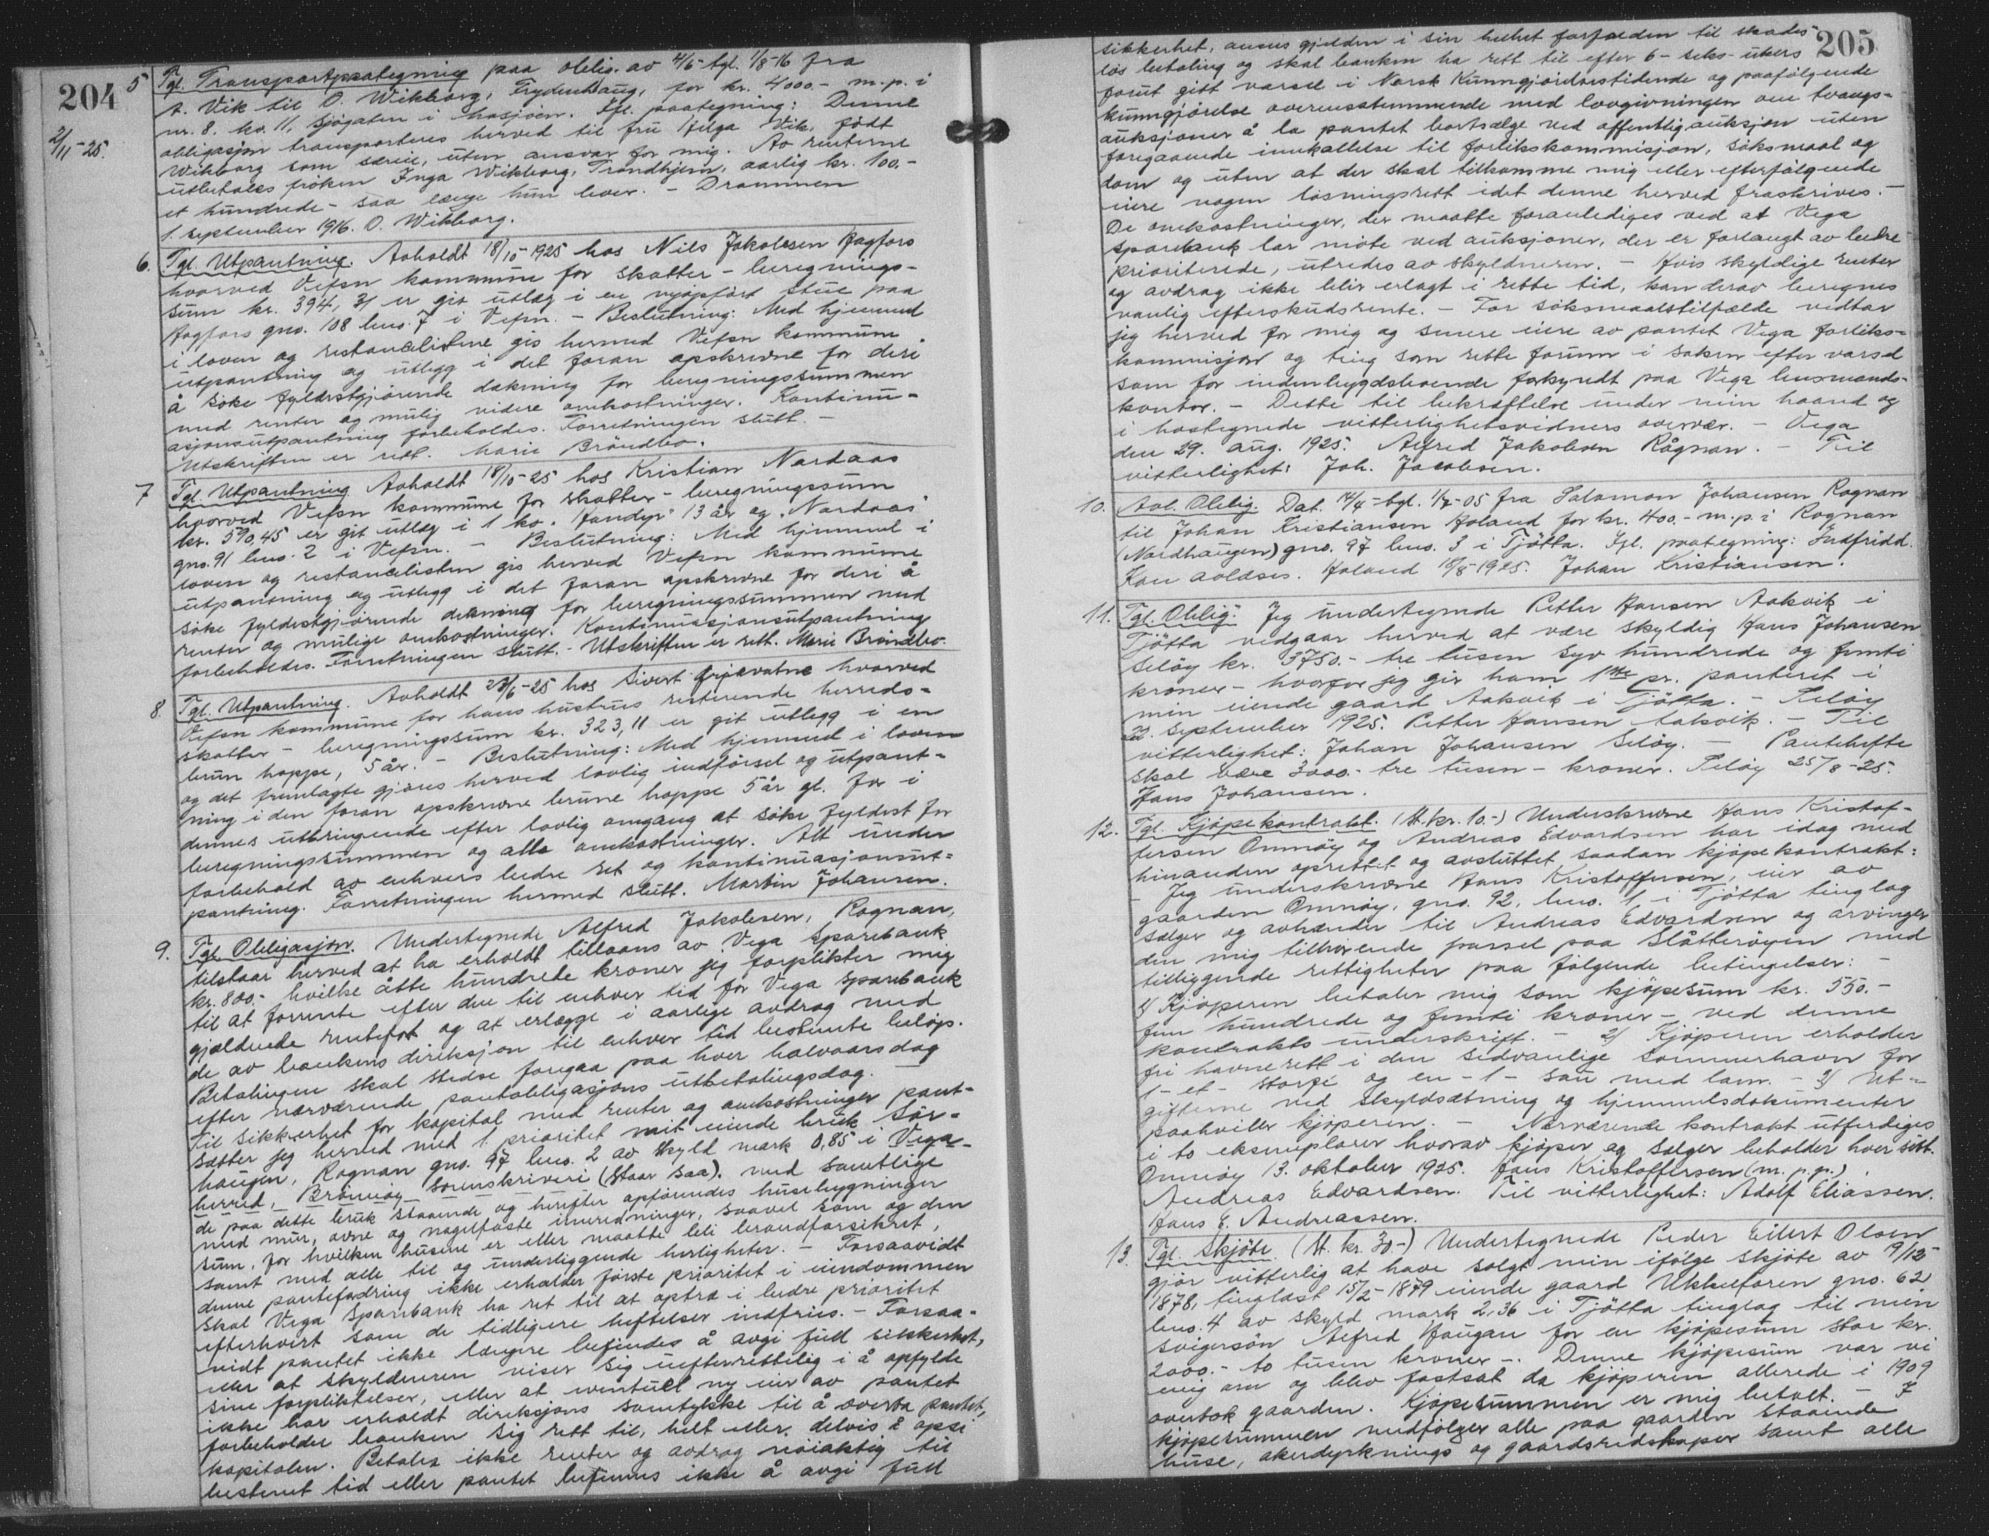 204
2/11-25.
5 Tgl. Transportpaategning paa oblig. av 4/5- tgl. 1/8-16 fra
A. Vik til O. Wikborg, Frydenhaug, for kr. 4000.- m.p. i
nr. 8. kv. 11, Sjøgaten i Mosjøen. Sgl. paategning: Denne
obligasjon transporteres herved til fru Helga Vik, født
Wikborg som særeie, uten ansvar for mig. Av renterne
utbetales frøken Inga Wikborg, Trondhjem, aarlig kr. 100.-
et hundrede - saa længe hun lever. - Drammen
1. september 1916. O. Wikborg.
6. Tgl. Utpantning. Avholdt 18/10-1925 hos Nils Jakobsen Fagfors
hvorved Vefsn kommune for skatter - beregnings-
sum kr. 394,31 er git utlæg i en nyopført stue paa
Fagfors gno. 108 bno. 7 i Vefsn. - Beslutning: Med hjemmel
i loven og restancelistene gis hermed Vefsn kommune
utpantning og utlegg i det foran opskrevne for deri
å søke fyldestgjørende dækning for beregningssummen
med renter og mulig videre omkostninger. Kontinu-
asjonsutpantning forbeholdes. Forretningen slutt. -
Utskriften er rett. Marie Brøndbo.
7 Tgl. Utpantning Avholdt 18/10-25 hos Kristian Nardaas
hvorved Vefsn kommune for skatter - beregningssum
kr. 570,45 er git utlæg i 1 ko "Vandyr" 13 år og "Nardaas"
gno. 91 bno. 2 i Vefsn. - Beslutning: Med hjemmel i
loven og restancelisten gis herved Vefsn kommune
utpantning og utlegg i det foran opskrevne for deri å
søke fyldestgjørende dækning for beregningssummen med
renter og mulige omkostninger. Kontinuasjonsutpantning
forbeholdes. Forretningen slutt. - Utskriften er rett. Marie Brøndbo.
8. Tgl. Utpantning. Avholdt 23/6-25 hos Sivert Gripvatne hvorved
Vefsn kommune for hans hustrus resterende herreds-
skatter - beregningssum kr. 323,11 er git utlegg i en
brun hoppe, 5 år. - Beslutning: Med hjemmel i loven
og det fremlagte gjøres herved lovlig indførsel og utpant-
ning i den foran opskrevne brune hoppe 5 år gl. for i
dennes utbringende efter lovlig omgang at søke fyldest for
beregningssummen og alle omkostninger. Alt under
forbehold av enhvers bedre ret og kontinuasjonsut-
pantning. Forretningen hermed slutt. Martin Johansen.
9. Tgl. Obligasjon. Undertegnede Alfred Jakobsen, Rognan,
tilstaar herved at ha erholdt tillaans av Vega Sparebank
kr. 800.- hvilke åtte hundrede kroner jeg forplikter mig
til at forrente efter den til enhver tid for Vega Sparebank
gjældende rentefot og at erlægge i aarlige avdrag med
de av bankens direksjon til enhver tid bestemte beløp.
Betalingen skal stedse foregaa paa hver halvaarsdag
efter nærværende pantobligasjons utbetalingsdag. -
Til sikkerhet for kapital med renter og omkostninger pant-
sætter jeg herved med 1 prioritet mit eiende bruk Sør-
haugen, Rognan gno. 97 bno. 2 av skyld mark 0,85 i Vega
herred, Brønnøy sorenskriveri (staar saa). med samtlige
de paa dette bruk staaende og herefter opførendes husebygninger
med mur, ovne og nagelfaste inredninger, saavel som og den
sum, for hvilken husene er eller maatte bli brandforsikret,
samt med alle til og underliggende herligheter. - Forsaavidt
denne pantefordring ikke erholder første prioritet i eiendommen
skal Vega Sparebank ha ret til at optræ i bedre prioritet
efterhvert som de tidligere heftelser indfries. - Forsaa-
vidt pantet ikke længere befindes å avgi fuld sikkerhet,
eller at skyldneren viser sig uefterrettelig i å opfylde
sine forpliktelser, eller at eventuel ny eier av pantet
ikke har erholdt direksjons samtykke til å overta pantet,
forbeholder banken sig rett til, helt eller delvis å opsi
kapitalen. Betales ikke renter og avdrag nøiaktig til
bestemt tid eller pantet befinnes ikke å avgi full
205
sikkerhet, ansees gjelden i sin helhet forfalden til skades-
løs betaling og skal banken ha rett til efter 6 - seks - ukers
forut gitt varsel i Norsk Kunngjørelsestidende og paafølgende
kunngjørelse overensstemmende med lovgivningen om tvangs-
auksjoner å la pantet bortsælge ved offentlig auksjon uten
foregaaende innkallelse til forlikskommisjon, søksmaal og
dom og uten at der skal tilkomme mig eller efterfølgende
eiere nogen løsningsrett idet denne herved fraskrives. -
De omkostninger, der maatte foranlediges ved at Vega
Sparebank lar møte ved auksjoner, der er forlangt av bedre
prioriterede, utredes av skyldneren. - Hvis skyldige renter
og avdrag ikke blir erlagt i rette tid, kan derav beregnes
vanlig efterskudsrente. - For søksmaalstilfælde vedtar
jeg herved for mig og senere eiere av pantet Vega forliks-
kommisjon og ting som rette forum i saken efter varsel
som for indenbygdsboende forkyndt paa Vega lensmands-
kontor. - Dette til bekræftelse under min haand og
i hostegnede vitterlighetsvidners overvær. - Vega
den 29. aug. 1925. Alfred Jakobsen Rågnan. - Til
vitterlighet: Joh. Jacobsen.
10. Avl. Oblig. Dat. 14/4- tgl. 1/7-05 fra Salamon Johansen Rognan
til Johan Kristiansen Høland for kr. 400.- m.p. i Rognan
(Nordhaugen) gno. 97 bno. 3 i Tjøtta. Sgl. paategning: Indfridd.
Kan avlæses. Høland 18/8-1925. Johan Kristiansen.
11. Tgl. Oblig. Jeg undertegnede Petter Hansen Aakvik i
Tjøtta vedgaar herved at være skyldig Hans Johansen
Seløy kr. 3750.- tre tusen syv hundrede og femti
kroner - hvorfor jeg gir ham 1ste pr. panteret i
min eiende gaard Aakvik i Tjøtta. - Seløy
22. september 1925. Petter Hansen Aakvik. - Til
vitterlighet: Johan Johansen Seløy. - Pantehefte
skal være 3000.- tre tusen - kroner. Seløy 25/8-25.
Hans Johansen.
12. Tgl. Kjøpekontrakt. (St. kr. 10.-) Underskrevne Hans Kristof-
fersen Omnøy og Andreas Edvardsen har idag med
hinanden oprettet og avsluttet saadan kjøpekontrakt:
- Jeg underskrevne Hans Kristoffersen, eier av
gaarden Omnøy, gno. 92, bno. 1 i Tjøtta tinglag
sælger og avhænder til Andreas Edvardsen og arvinger
den mig tilhørende parsel paa Slåtterøyen med
tilliggende rettigheter paa følgende betingelser: -
1/ Kjøperen betaler mig som kjøpesum kr. 550.-
fem hundrede og femti kroner - ved denne
kontrakts underskrift. - 2/ Kjøperen erholder
fri havnerett i den sedvanlige sommerhavn for
1 - et - storfe og en - 1 - sau med lam. - 3/ Ut-
gifterne ved skyldsætning og hjemmelsdokumenter
paahviler kjøperen. - Nærværende kontrakt utferdiges
i to eksemplarer hvorav kjøper og sælger beholder hver sitt.
Omnøy 13. oktober 1925. Hans Kristoffersen (m. p. p.)
Andreas Edvardsen. Til vitterlighet: Adolf Eliassen.
Hans E. Andreassen.
13. Tgl. Skjøte. (St. kr. 30.-) Undertegnede Peder Eilert Olsen
gjør vitterlig at have solgt min ifølge skjøte av 9/12-
1878, tinglæst 15/2-1879 eiende gaard Ukkelfaren gno. 62
bno. 4 av skyld mark 2,36 i Tjøtta tinglag til min
svigersøn Alfred Haugan for en kjøpesum stor kr.
2000.- to tusen kroner -. Denne kjøpesum var vi
enig om og blev fastsat da kjøperen allerede i 1909
overtok gaarden. Kjøpesummen er mig betalt. - I
kjøpesummen medfølger alle paa gaarden staaende
huse, akerdyrknings og gaardsredskaper samt alle